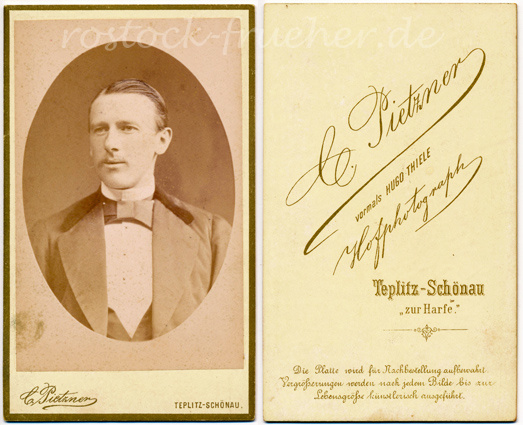 rostock-frueher.de
C. Pietzner
TEPLITZ-SCHÖNAU.
C. Pietzner
vormals HUGO THIELE
Hofphotograph
Teplitz-Schönau
„zur Harfe."
Die Platte wird für Nachbestellung aufbewahrt
Vergrößerungen werden nach jedem Bilde bis zur
Lebensgröße künstlerisch ausgeführt.